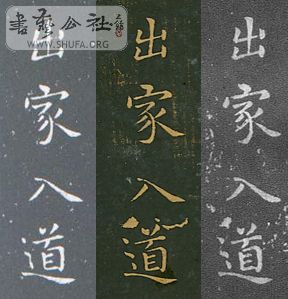 書藝公社
WWW.SHUFA.ORG
出家入道
出家入道
出家入道